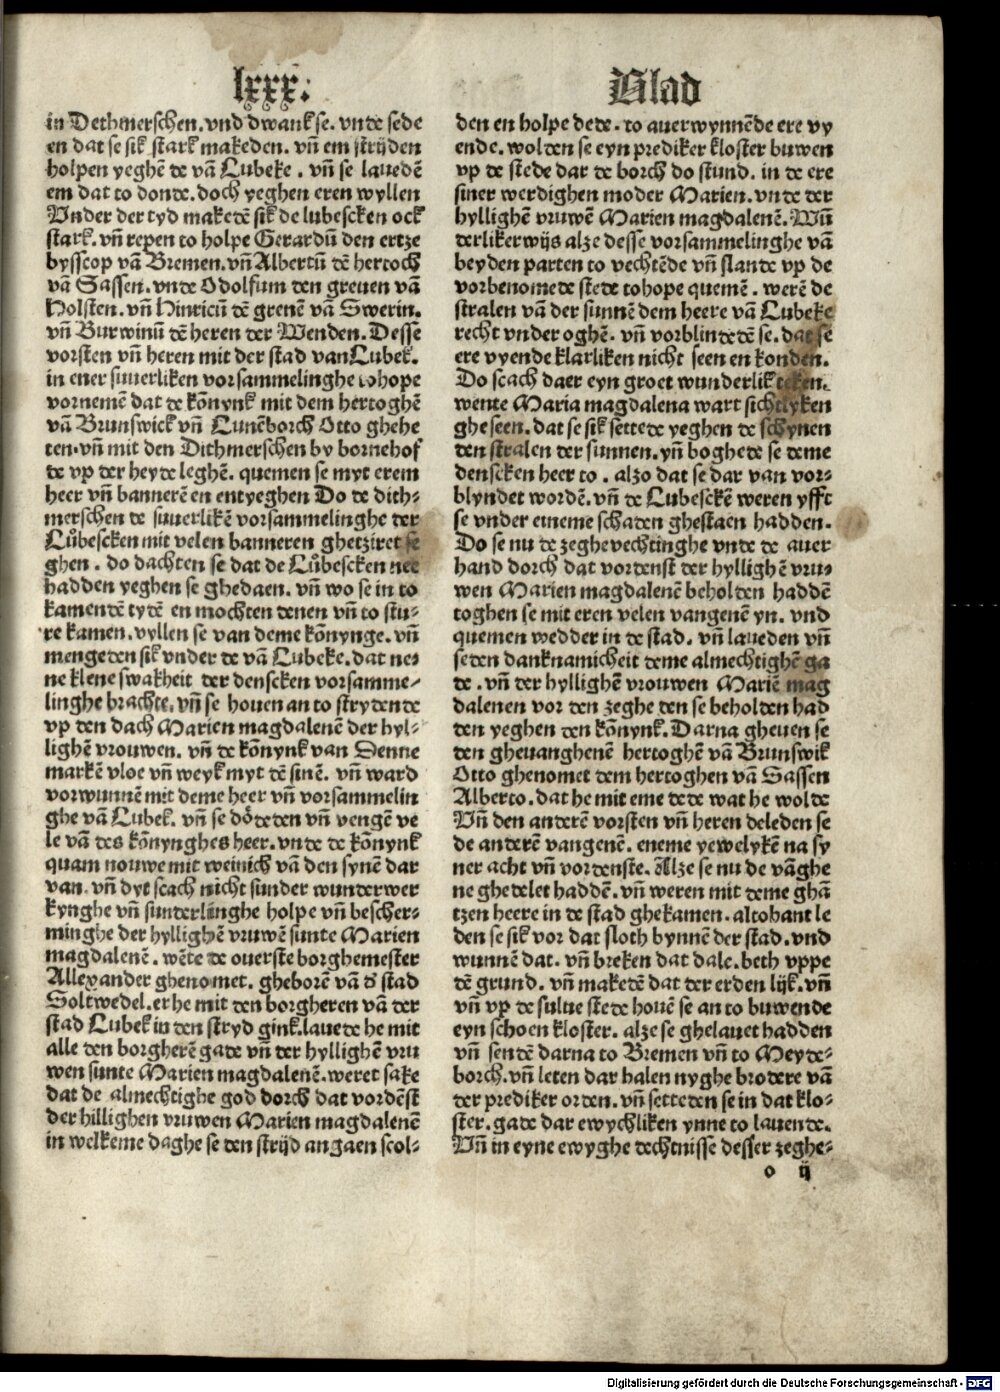 lxxx:
Blad
in Dethmerschen. vnd dwank se. vnde sede
en dat se sik stark makeden. vn̄ em strijden
holpen yeghē de vā Lubeke. vn̄ se lauedē
em dat to donde. doch yeghen eren wyllen
Vnder der tyd makedē sik de lubescken ock
stark. vn̄ repen to holpe Gerardū den ertze
bysscop vā Bremen. vn̄ Albertū dē hertoch
vā Sassen. vnde Odolfum den greuen vā
Holsten. vn̄ Hinricū dē greuē vā Swerin.
vn̄ Burwinū dē heren der Wenden. Desse
vorsten vn̄ heren mit der stad van Lubek.
in ener suuerliken vorsammelinghe tohope
vornemē dat de kōnynk mit dem hertoghē
vā Brunswick vn̄ Lunēborch Otto ghehe
ten. vn̄ mit den Dithmerschen by bornehof
de vp der heyde leghē. quemen se myt erem
heer vn̄ bannerē en entyeghen Do de dith-
merschen de suuerlikē vorsammelinghe der
Lůbescken mit velen banneren ghetziret se
ghen. do dachten se dat de Lůbescken nee
hadden yeghen se ghedaen. vn̄ wo se in to
kamendē tydē en mochten denen vn̄ to stu-
re kamen. vyllen se van deme kōnynge. vn̄
mengeden sik vnder de vā Lubeke. dat ne-
ne klene swakheit der denscken vorsamme-
linghe brachte. vn̄ se houen an to strydende
vp den dach Marien magdalenē der hyl-
lighē vrouwen. vn̄ de kōnynk van Denne
markē vloe vn̄ weyk myt dē sinē. vn̄ ward
vorwunnē mit deme heer vn̄ vorsammelin
ghe vā Lubek. vn̄ se dȯdeden vn̄ vengē ve
le vā des kōnynghes heer. vnde de kōnynk
quam nouwe mit weinich vā den synē dar
van. vn̄ dyt scach nicht sunder wunderwer
kynghe vn̄ sunderlinghe holpe vn̄ bescher-
minghe der hyllighē vruwē sunte Marien
magdalenē. wēte de ouerste borghemester
Allexander ghenomet. gheborē vā d' stad
Soltwedel. er he mit den borgheren vā der
stad Lubek in den stryd gink. lauede he mit
alle den borgherē gade vn̄ der hyllighē vru
wen sunte Marien magdalenē. weret sake
dat de almechtighe god dorch dat vordēst
der hillighen vruwen Marien magdalenē
in welkeme daghe se den strijd angaen scol-
den en holpe dede. to auerwynnēde ere vy
ende. wolden se eyn prediker kloster buwen
vp de stede dar de borch do stund. in de ere
siner werdighen moder Marien. vnde der
hyllighē vruwē Marien magdalenē. Wū
derlikerwijs alze desse vorsammelinghe vā
beyden parten to vechtēde vn̄ slande vp de
vorbenomede stede tohope quemē. werē de
stralen vā der sunnē dem heere vā Lubeke
recht vnder oghē. vn̄ vorblindedē se. dat se
ere vyende klarliken nicht seen en konden.
Do scach daer eyn groet wunderlik teken.
wente Maria magdalena wart sichtlyken
gheseen. dat se sik settede yeghen de schynen
den stralen der sunnen. vn̄ boghede se deme
denscken heer to. alzo dat se dar van vor-
blyndet wordē. vn̄ de Lubesckē weren yfft
se vnder eineme schaden ghestaen hadden.
Do se nu de zeghevechtinghe vnde de auer
hand dorch dat vordenst der hyllighē vru-
wen Marien magdalenē beholden haddē
toghen se mit eren velen vangenē yn. vnd
quemen wedder in de stad. vn̄ laueden vn̄
seden danknamicheit deme almechtighē ga
de. vn̄ der hyllighen vrouwen Mariē mag
dalenen vor den zeghe den se beholden had
den yeghen den kōnynk. Darna gheuen se
den gheuanghenē hertoghē vā Brunswik
Otto ghenomet dem hertoghen vā Sassen
Alberto. dat he mit eme dede wat he wolde
Vn̄ den anderē vorsten vn̄ heren deleden se
de anderē vangenē. eneme yewelykē na sy
ner acht vn̄ vordenste. Alze se nu de vāghe
ne ghedelet haddē. vn̄ weren mit deme ghā
tzen heere in de stad ghekamen. altohant le
den se sik vor dat sloth bynnē der stad. vnd
wunnē dat. vn̄ breken dat dale. beth vppe
dē grund. vn̄ makedē dat der erden lijk. vn̄
vn̄ vp de sulue stede houē se an to buwende
eyn schoen kloster. alze se ghelauet hadden
vn̄ sendē darna to Bremen vn̄ to Meyde-
borch. vn̄ leten dar halen nyghe brodere vā
der prediker orden. vn̄ setteden se in dat klo-
ster. gade dar ewychliken ynne to lauende.
Vn̄ in eyne ewyghe dechtnisse desser zeghe-
o ij
Digitalisierung gefördert durch die Deutsche Forschungsgemeinschaft - DFG